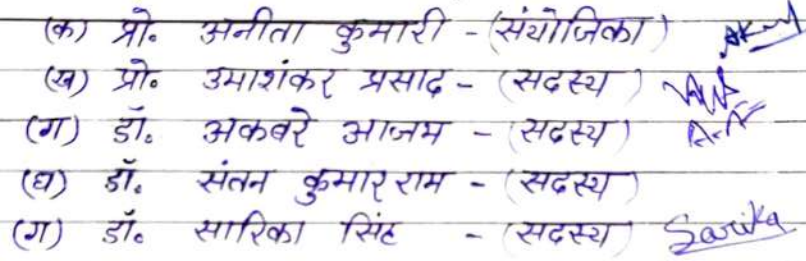 (क) प्रो० अनीता कुमारी - (संयोजिका)
(ख) प्रो० उमाशंकर प्रसाद - (सदस्य)
(ग) डॉ० अकबरे आजम - (सदस्य)
(घ) डॉ० संतन कुमार राम - (सदस्य)
(ग) डॉ० सारिका सिंह - (सदस्य) Sarika